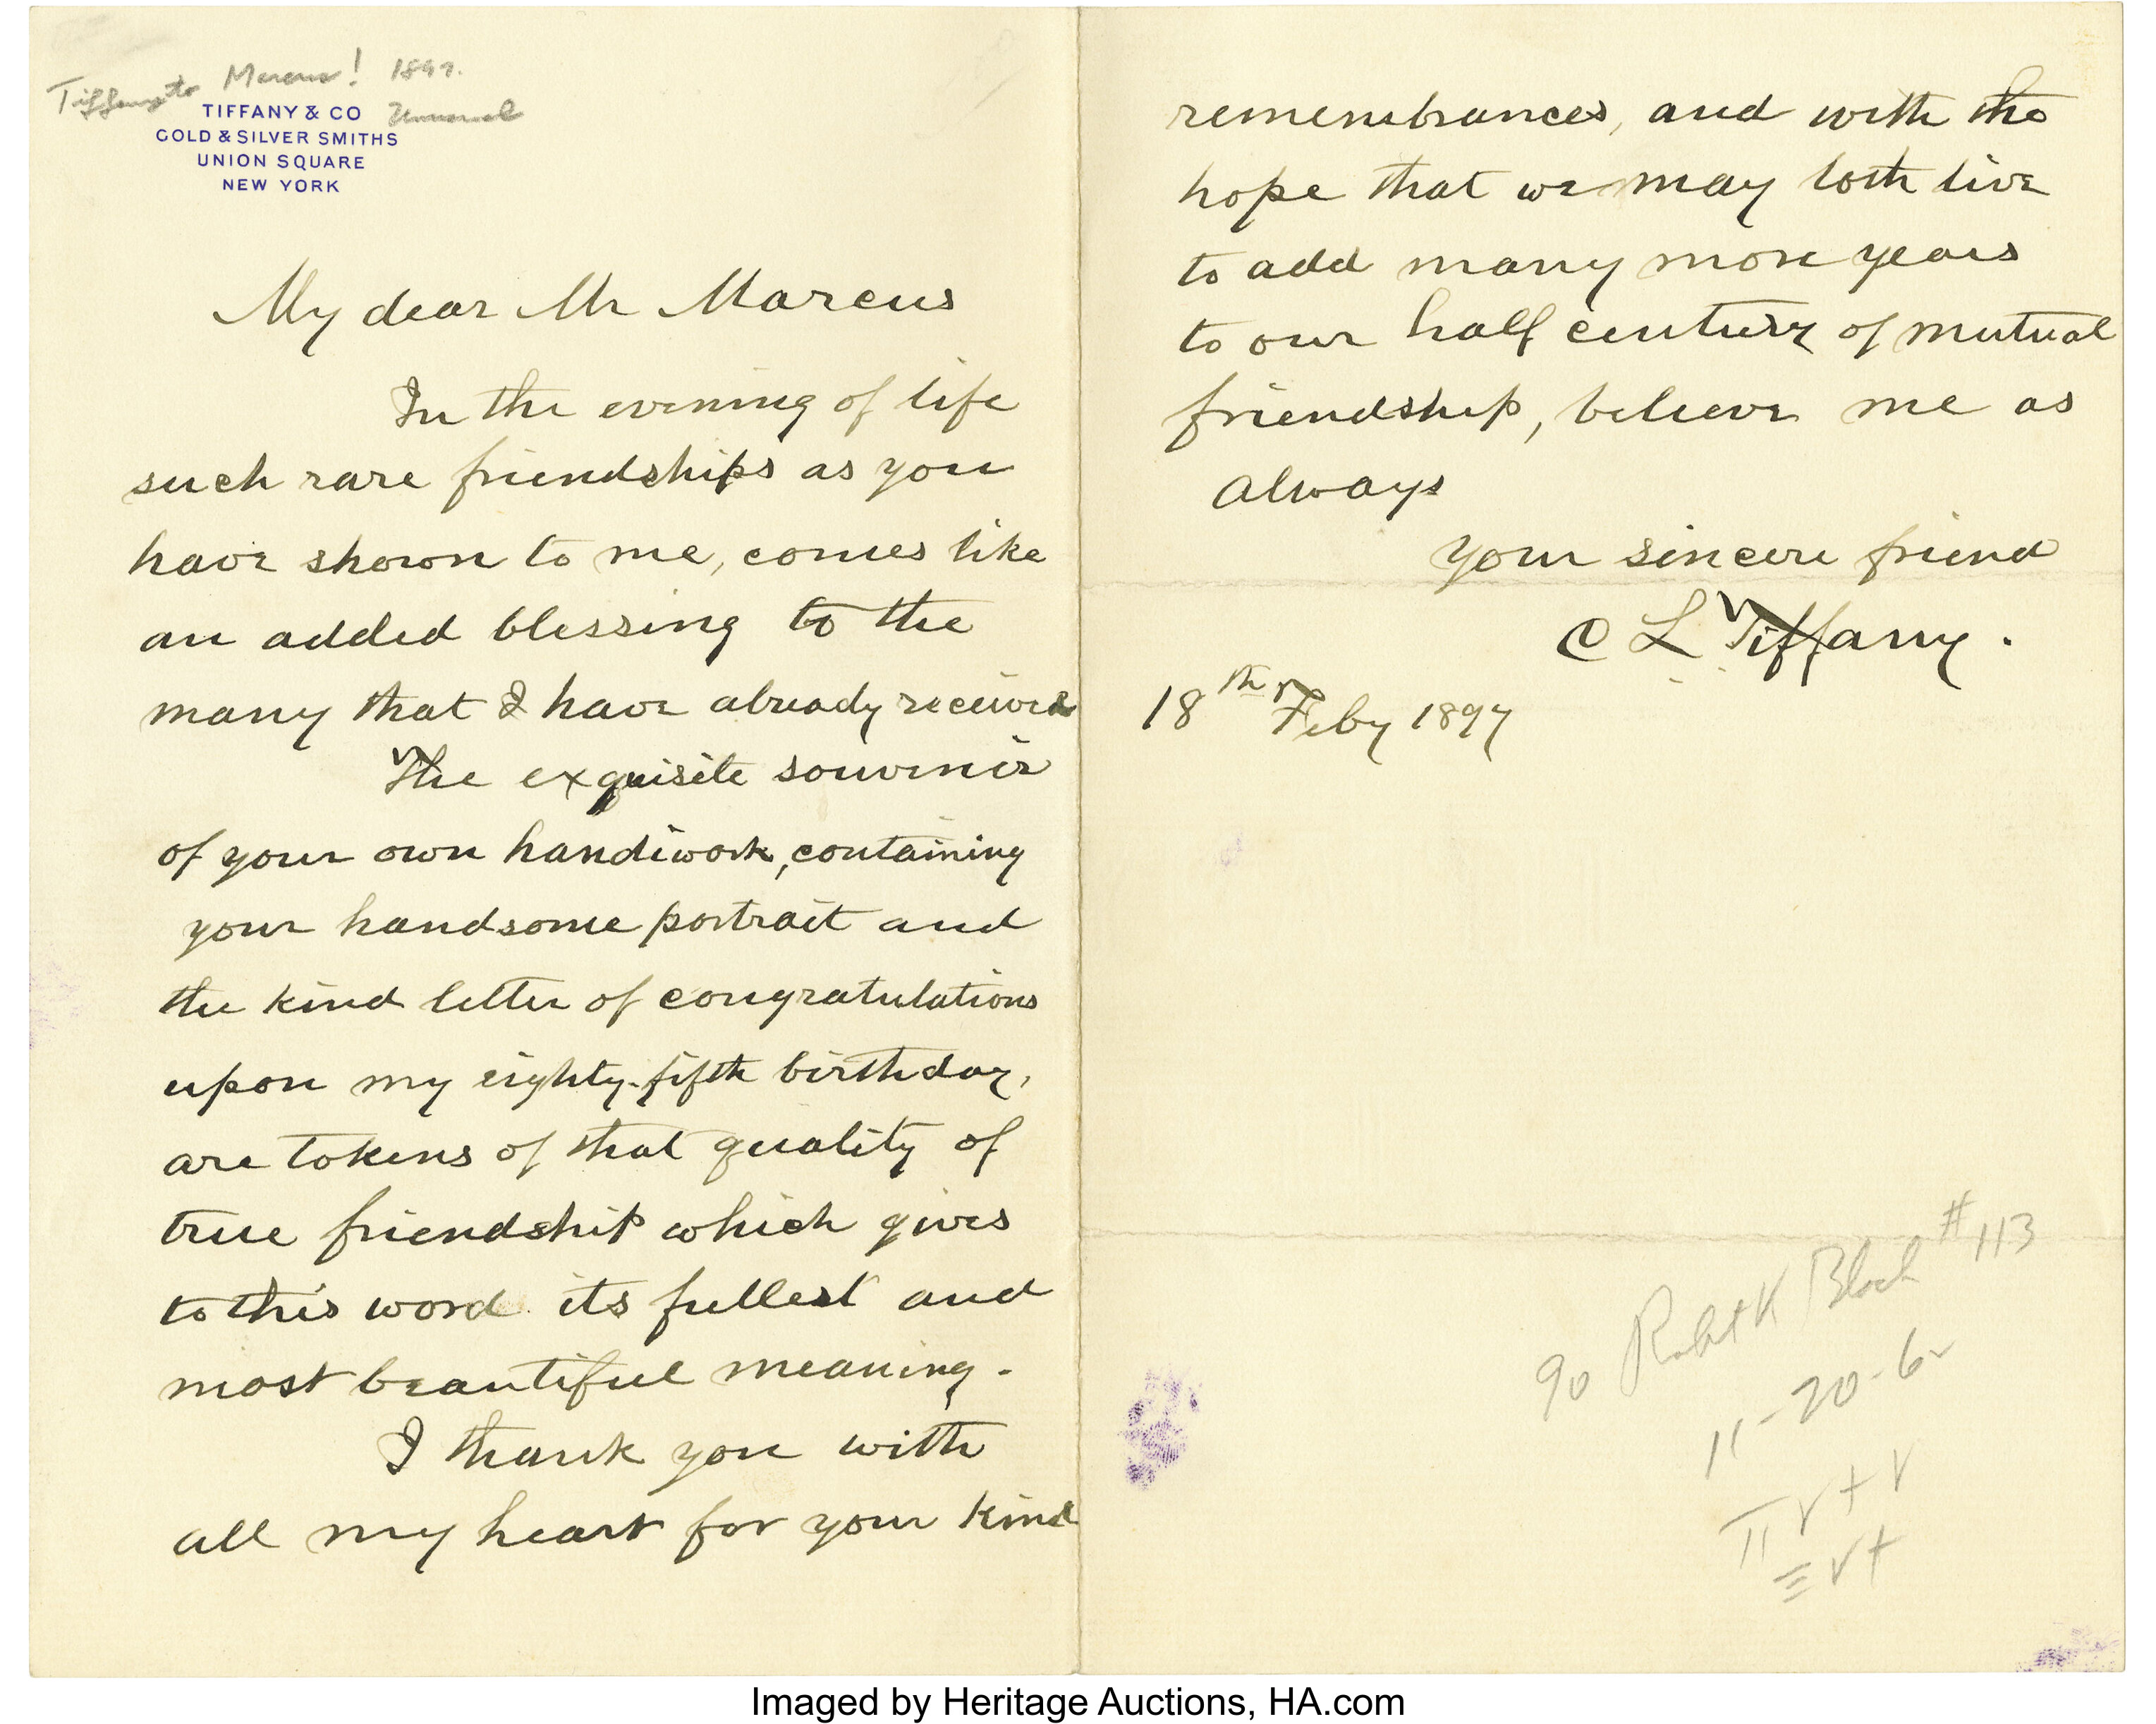 Tiffany to Marcus! 1897.
Unusual
TIFFANY & CO
GOLD & SILVER SMITHS
UNION SQUARE
NEW YORK
My dear Mr Marcus
In the evening of life
such rare friendships as you
have shown to me, comes like
an added blessing to the
many that I have already received
The exquisite souvenir
of your own handiwork, containing
your handsome portrait and
the kind letter of congratulations
upon my eighty-fifth birthday,
are tokens of that quality of
true friendship which gives
to this word its fullest and
most beautiful meaning.
I thank you with
all my heart for your kind
remembrances, and with the
hope that we may both live
to add many more years
to our half century of mutual
friendship, believe me as
always
your sincere friend
C L Tiffany.
18th Feby 1897
90 Robt K Black #113
11-20-62
Imaged by Heritage Auctions, HA.com